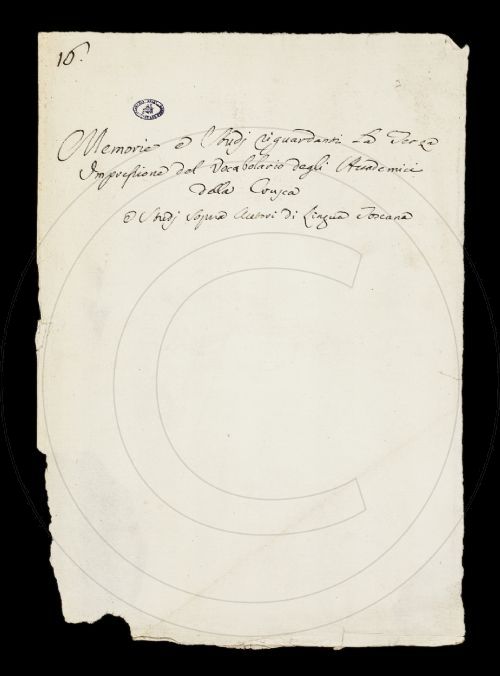 16.
Memorie e Studj riguardanti la Terza
Impressione del Vocabolario degli Accademici
della Crusca
e Studj sopra Autori di Lingua Toscana